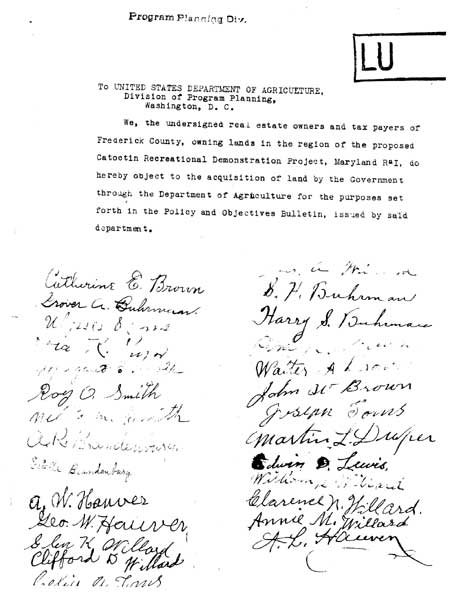 Program Planning Div.
LU
To UNITED STATES DEPARTMENT OF AGRICULTURE,
Division of Program Planning,
Washington, D. C.
We, the undersigned real estate owners and tax payers of
Frederick County, owning lands in the region of the proposed
Catoctin Recreational Demonstration Project, Maryland R&I, do
hereby object to the acquisition of land by the Government
through the Department of Agriculture for the purposes set
forth in the Policy and Objectives Bulletin, issued by said
department.
Catherine E. Brown
Grover A. Buhrman
Roy O. Smith
Smith
Estelle Brandenburg
A. W. Hauver
Geo. W. Hauver
Glen K. Willard
Clifford D Willard
S. H. Buhrman
Harry S. Buhrman
Walter A Brown
John W Brown
Joseph Toms
Martin L. Draper
Edwin D. Lewis,
Willard
Clarence N. Willard.
Annie M. Willard
A. L. Hauver